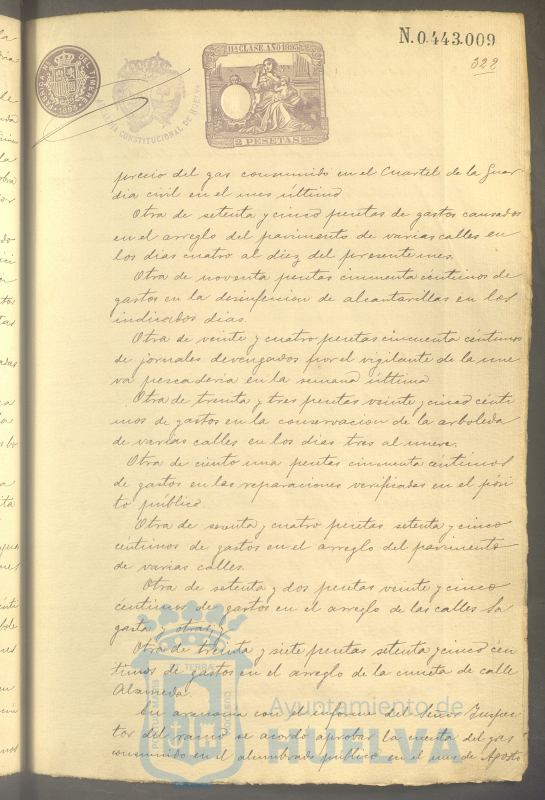 N.0.443.009
322
11ª CLASE. AÑO 1895
2 PESETAS
ALCALDIA CONSTITUCIONAL DE HUELVA
precio del gas consumido en el Cuartel de la Guar
dia civil en el mes último
Otra de setenta y cinco pesetas de gastos causados
en el arreglo del pavimento de varias calles en
los dias cuatro al diez del presente mes.
Otra de noventa pesetas cincuenta céntimos de
gastos en la desinfeccion de alcantarillas en los
indicados dias.
Otra de veinte y cuatro pesetas cincuenta céntimos
de jornales devengados por el vigilante de la nue
va pescaderia en la semana última
Otra de treinta y tres pesetas veinte y cinco cénti
mos de gastos en la conservacion de la arboleda
de varias calles en los dias tres al nueve.
Otra de ciento una pesetas cincuenta céntimos
de gastos en las reparaciones verificadas en el pósi
to público
Otra de y cuatro pesetas setenta y cinco
céntimos de gastos en el arreglo del pavimento
de varias calles.
Otra de setenta y dos pesetas veinte y cinco
céntimos de gastos en el arreglo de las calles Sa
gasta y otras.
Otra de treinta y siete pesetas setenta y cinco cén
timos de gastos en el arreglo de la cuneta de calle
Alameda.
En armonia con el informe del Señor Inspec
tor del ramo se acordó aprobar la cuenta del gas
consumido en el alumbrado publico en el mes de Agosto
Ayuntamiento de
HUELVA